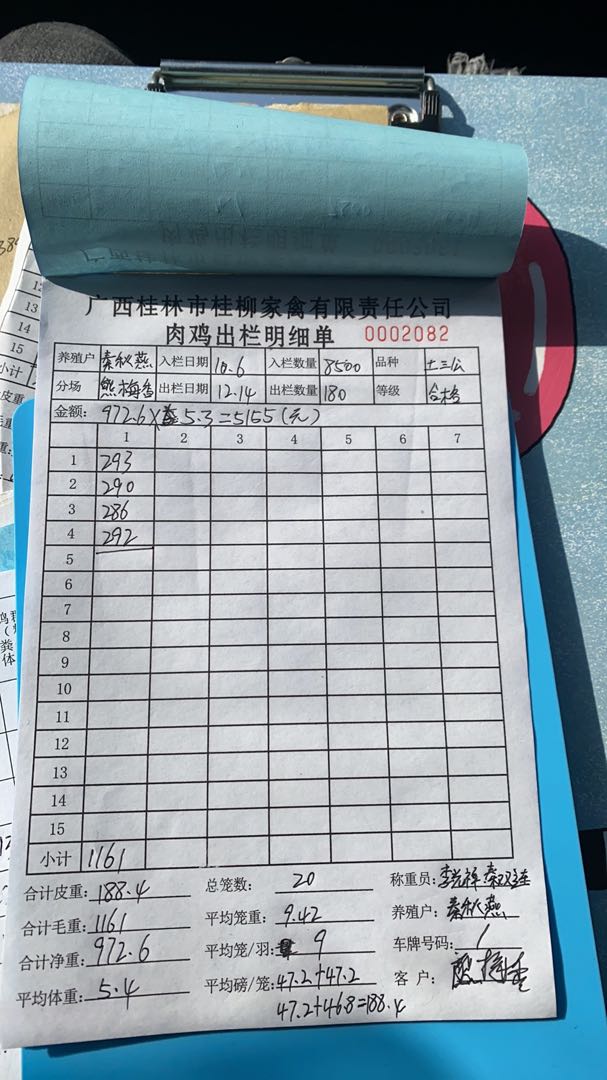 广西桂林市桂柳家禽有限责任公司
肉鸡出栏明细单 0002082
养殖户 秦秋燕 入栏日期 10.6 入栏数量 8500 品种 土三公
分场 熊梅香 出栏日期 12.14 出栏数量 180 等级 合格
金额: 972.6× 5.3=5155(元)
1 2 3 4 5 6 7
1 293
2 290
3 286
4 292
5
6
7
8
9
10
11
12
13
14
15
小计 1161
合计皮重: 188.4 总笼数: 20 称重员:
合计毛重: 1161 平均笼重: 9.42 养殖户: 秦秋燕
合计净重: 972.6 平均笼/羽: 9 车牌号码: /
平均体重: 5.4 平均磅/笼: 47.2+47.2 客户:
47.2+46.8=188.4